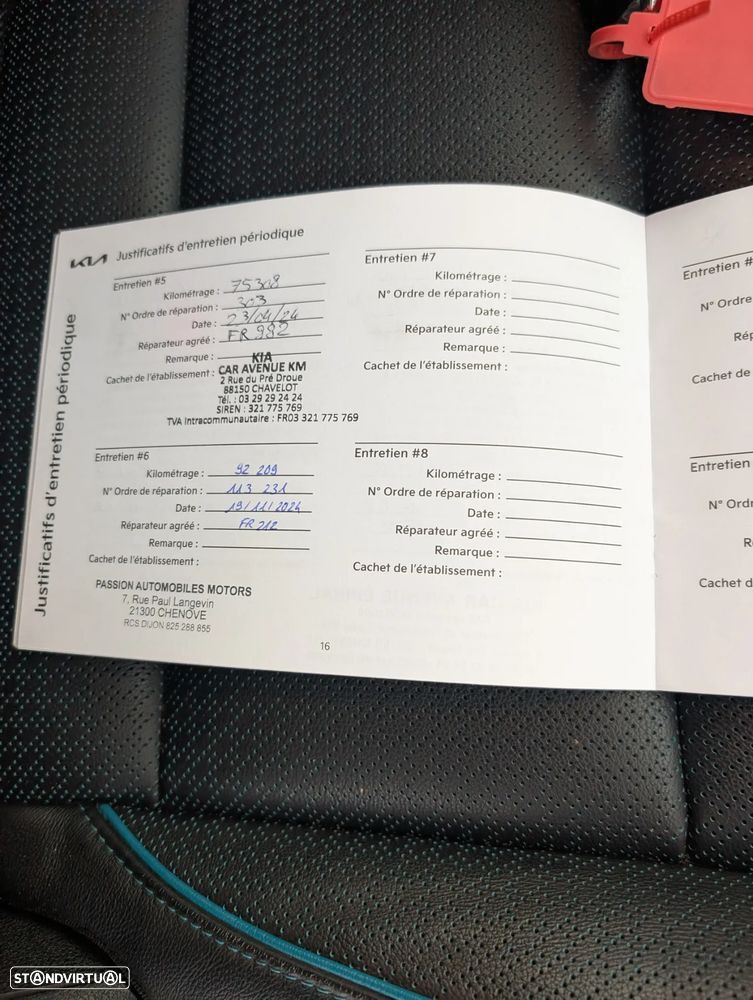 KIA Justificatifs d'entretien périodique
Justificatifs d'entretien périodique
Entretien #5
Kilométrage : 75308
N° Ordre de réparation : 303
Date : 23/04/24
Réparateur agréé : FR 982
Remarque :
Cachet de l'établissement :
KIA
CAR AVENUE KM
2 Rue du Pré Droue
88150 CHAVELOT
Tél. : 03 29 29 24 24
SIREN : 321 775 769
TVA Intracommunautaire : FR03 321 775 769
Entretien #6
Kilométrage : 92 209
N° Ordre de réparation : 113 231
Date : 19/11/2024
Réparateur agréé : FR 212
Remarque :
Cachet de l'établissement :
PASSION AUTOMOBILES MOTORS
7, Rue Paul Langevin
21300 CHENOVE
RCS DIJON 825 268 855
Entretien #7
Kilométrage :
N° Ordre de réparation :
Date :
Réparateur agréé :
Remarque :
Cachet de l'établissement :
Entretien #8
Kilométrage :
N° Ordre de réparation :
Date :
Réparateur agréé :
Remarque :
Cachet de l'établissement :
16
Entretien #
N° Ordre
Rép
Cachet de
Entretien
N° Ordr
R
Cachet d
STANDVIRTUAL